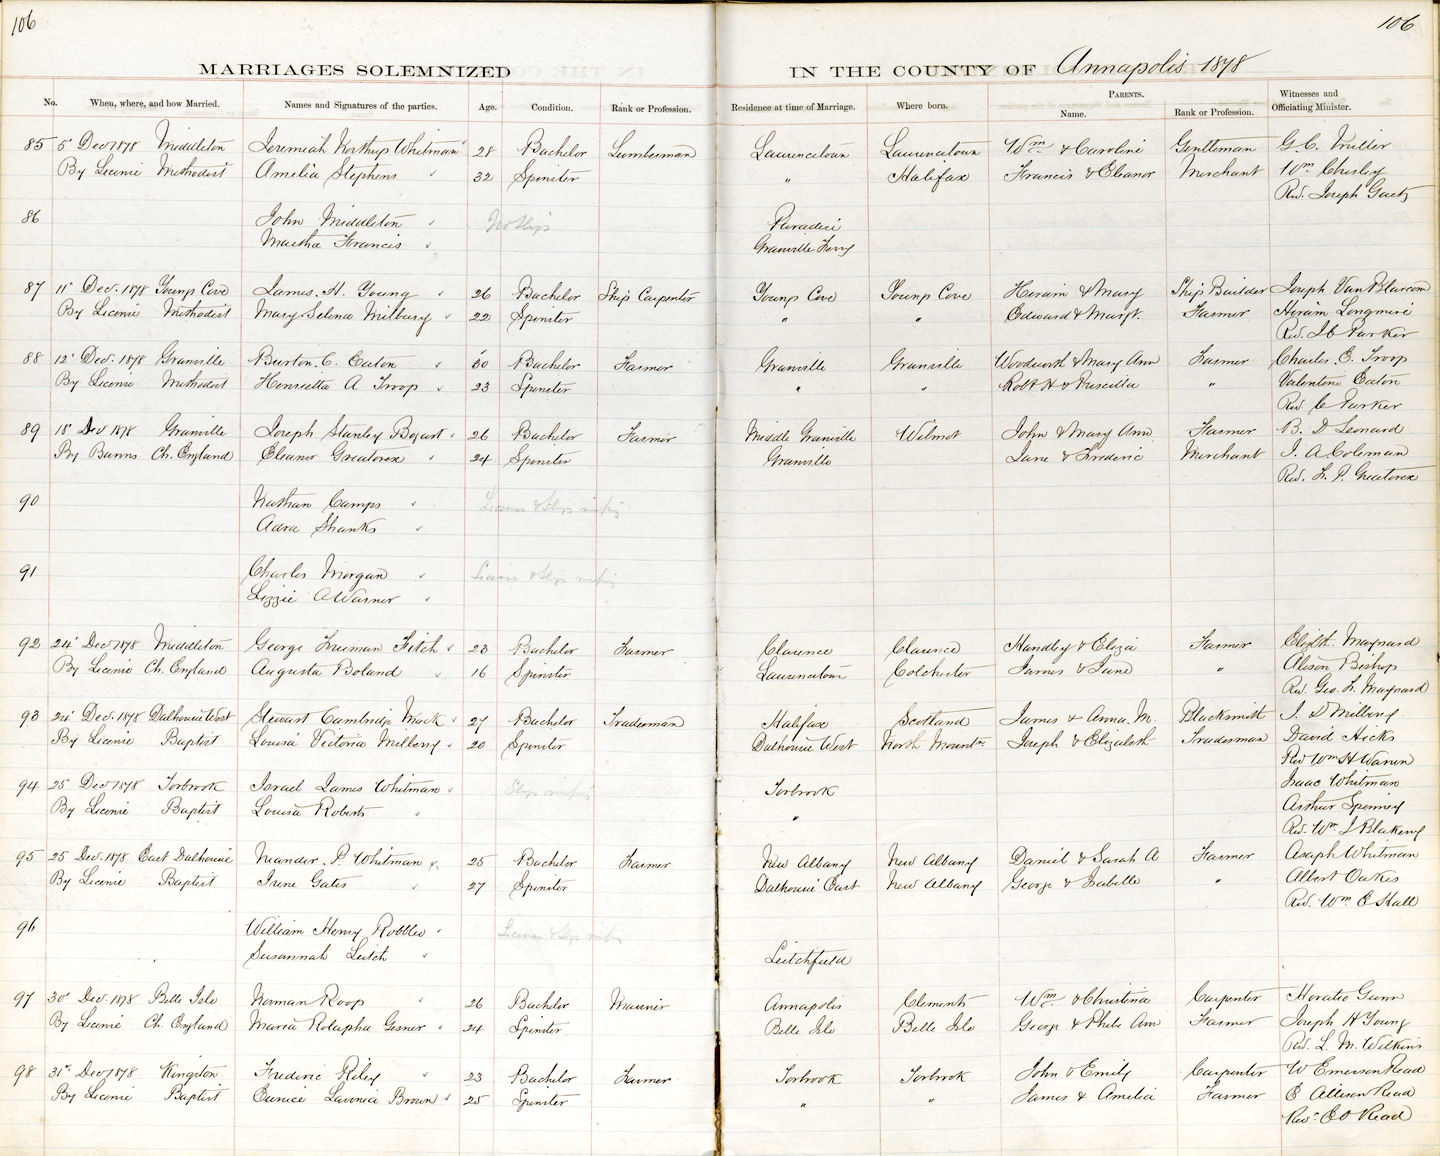 106
106
MARRIAGES SOLEMNIZED IN THE COUNTY OF Annapolis 1878
No. When, where, and how Married. Names and Signatures of the parties. Age. Condition. Rank or Profession. Residence at time of Marriage. Where born. PARENTS. Name. Rank or Profession. Witnesses and Officiating Minister.
85 5 Dec 1878 Middleton Jeremiah Northup Whitman 28 Bachelor Lumberman Laurencetown Laurencetown Wm & Caroline Gentleman G. C. Miller
By Licence Methodist Amelia Stephens 32 Spinster " Halifax Francis & Eleanor Merchant Wm Chesley
Rev. Joseph Gaetz
86 John Middleton No Slip Paradise
Martha Francis Granville Ferry
87 11" Dec. 1878 Youngs Cove James. H. Young 26 Bachelor Ship Carpenter Youngs Cove Youngs Cove Hiram & Mary Ship Builder Joseph VanBlarcom
By Licence Methodist Mary Selena Milbury 22 Spinster " " Edward & Margt. Farmer Hiram Longmire
Rev. J C Parker
88 12" Dec. 1878 Granville Burton. C. Eaton 30 Bachelor Farmer Granville Granville Woodworth & Mary Ann Farmer Charles. E. Troop
By Licence Methodist Henrietta A Troop 23 Spinster " " Robt H & Priscilla " Valentine Eaton
Rev. C Parker
89 18" Dec 1878 Granville Joseph Stanley Bogart 26 Bachelor Farmer Middle Granville Wilmot John & Mary Ann Farmer B. D Leonard
By Banns Ch. England Eleanor Greatorex 24 Spinster Granville Jane & Frederic Merchant J. A Coleman
Rev. F. P. Greatorex
90 Nathan Camps Licence & Slips missing
Adra Shanks
91 Charles Morgan Licence & Slips missing
Lizzie A Warner
92 24" Dec 1878 Middleton George Freeman Fitch 23 Bachelor Farmer Clarence Clarence Handley & Eliza Farmer Elizbth. Maynard
By Licence Ch. England Augusta Boland 16 Spinster Laurencetown Colchester James & Jane " Alison Bishop
Rev. Geo. F. Maynard
93 24" Dec. 1878 Dalhousie West Stewart Cambridge Mack 27 Bachelor Tradesman Halifax Scotland James & Anna. M. Blacksmith J. D Milbery
By Licence Baptist Louisa Victoria Milbery 20 Spinster Dalhousie West North Mountn Joseph & Elizabeth Tradesman David Hicks
Rev Wm H Warren
94 25 Dec 1878 Torbrook Israel James Whitman Slips missing Torbrook Isaac Whitman
By Licence Baptist Louisa Roberts " Arthur Spinney
Rev. Wm J Blakeny
95 25 Dec. 1878 East Dalhousie Neander. P. Whitman 25 Bachelor Farmer New Albany New Albany Daniel & Sarah A Farmer Asaph Whitman
By Licence Baptist Irene Gates 27 Spinster Dalhousie East New Albany George & Isabella " Albert Oakes
Rev. Wm E Hall
96 William Henry Robblee Licence & Slips missing
Susannah Leitch Leitchfield
97 30" Dec. 1878 Belle Isle Norman Roop 26 Bachelor Mariner Annapolis Clements Wm & Christina Carpenter Horatio Gunn
By Licence Ch. England Maria Rolapha Gesner 24 Spinster Belle Isle Belle Isle George & Phebe Ann Farmer Joseph H Young
Rev. L. M. Wilkins
98 31st Dec 1878 Kingston Frederic Riley 23 Bachelor Farmer Torbrook Torbrook John & Emily Carpenter W Emerson Read
By Licence Baptist Eunice Lavenia Brown 25 Spinster " " James & Amelia Farmer E Allison Read
Rev. E O Read